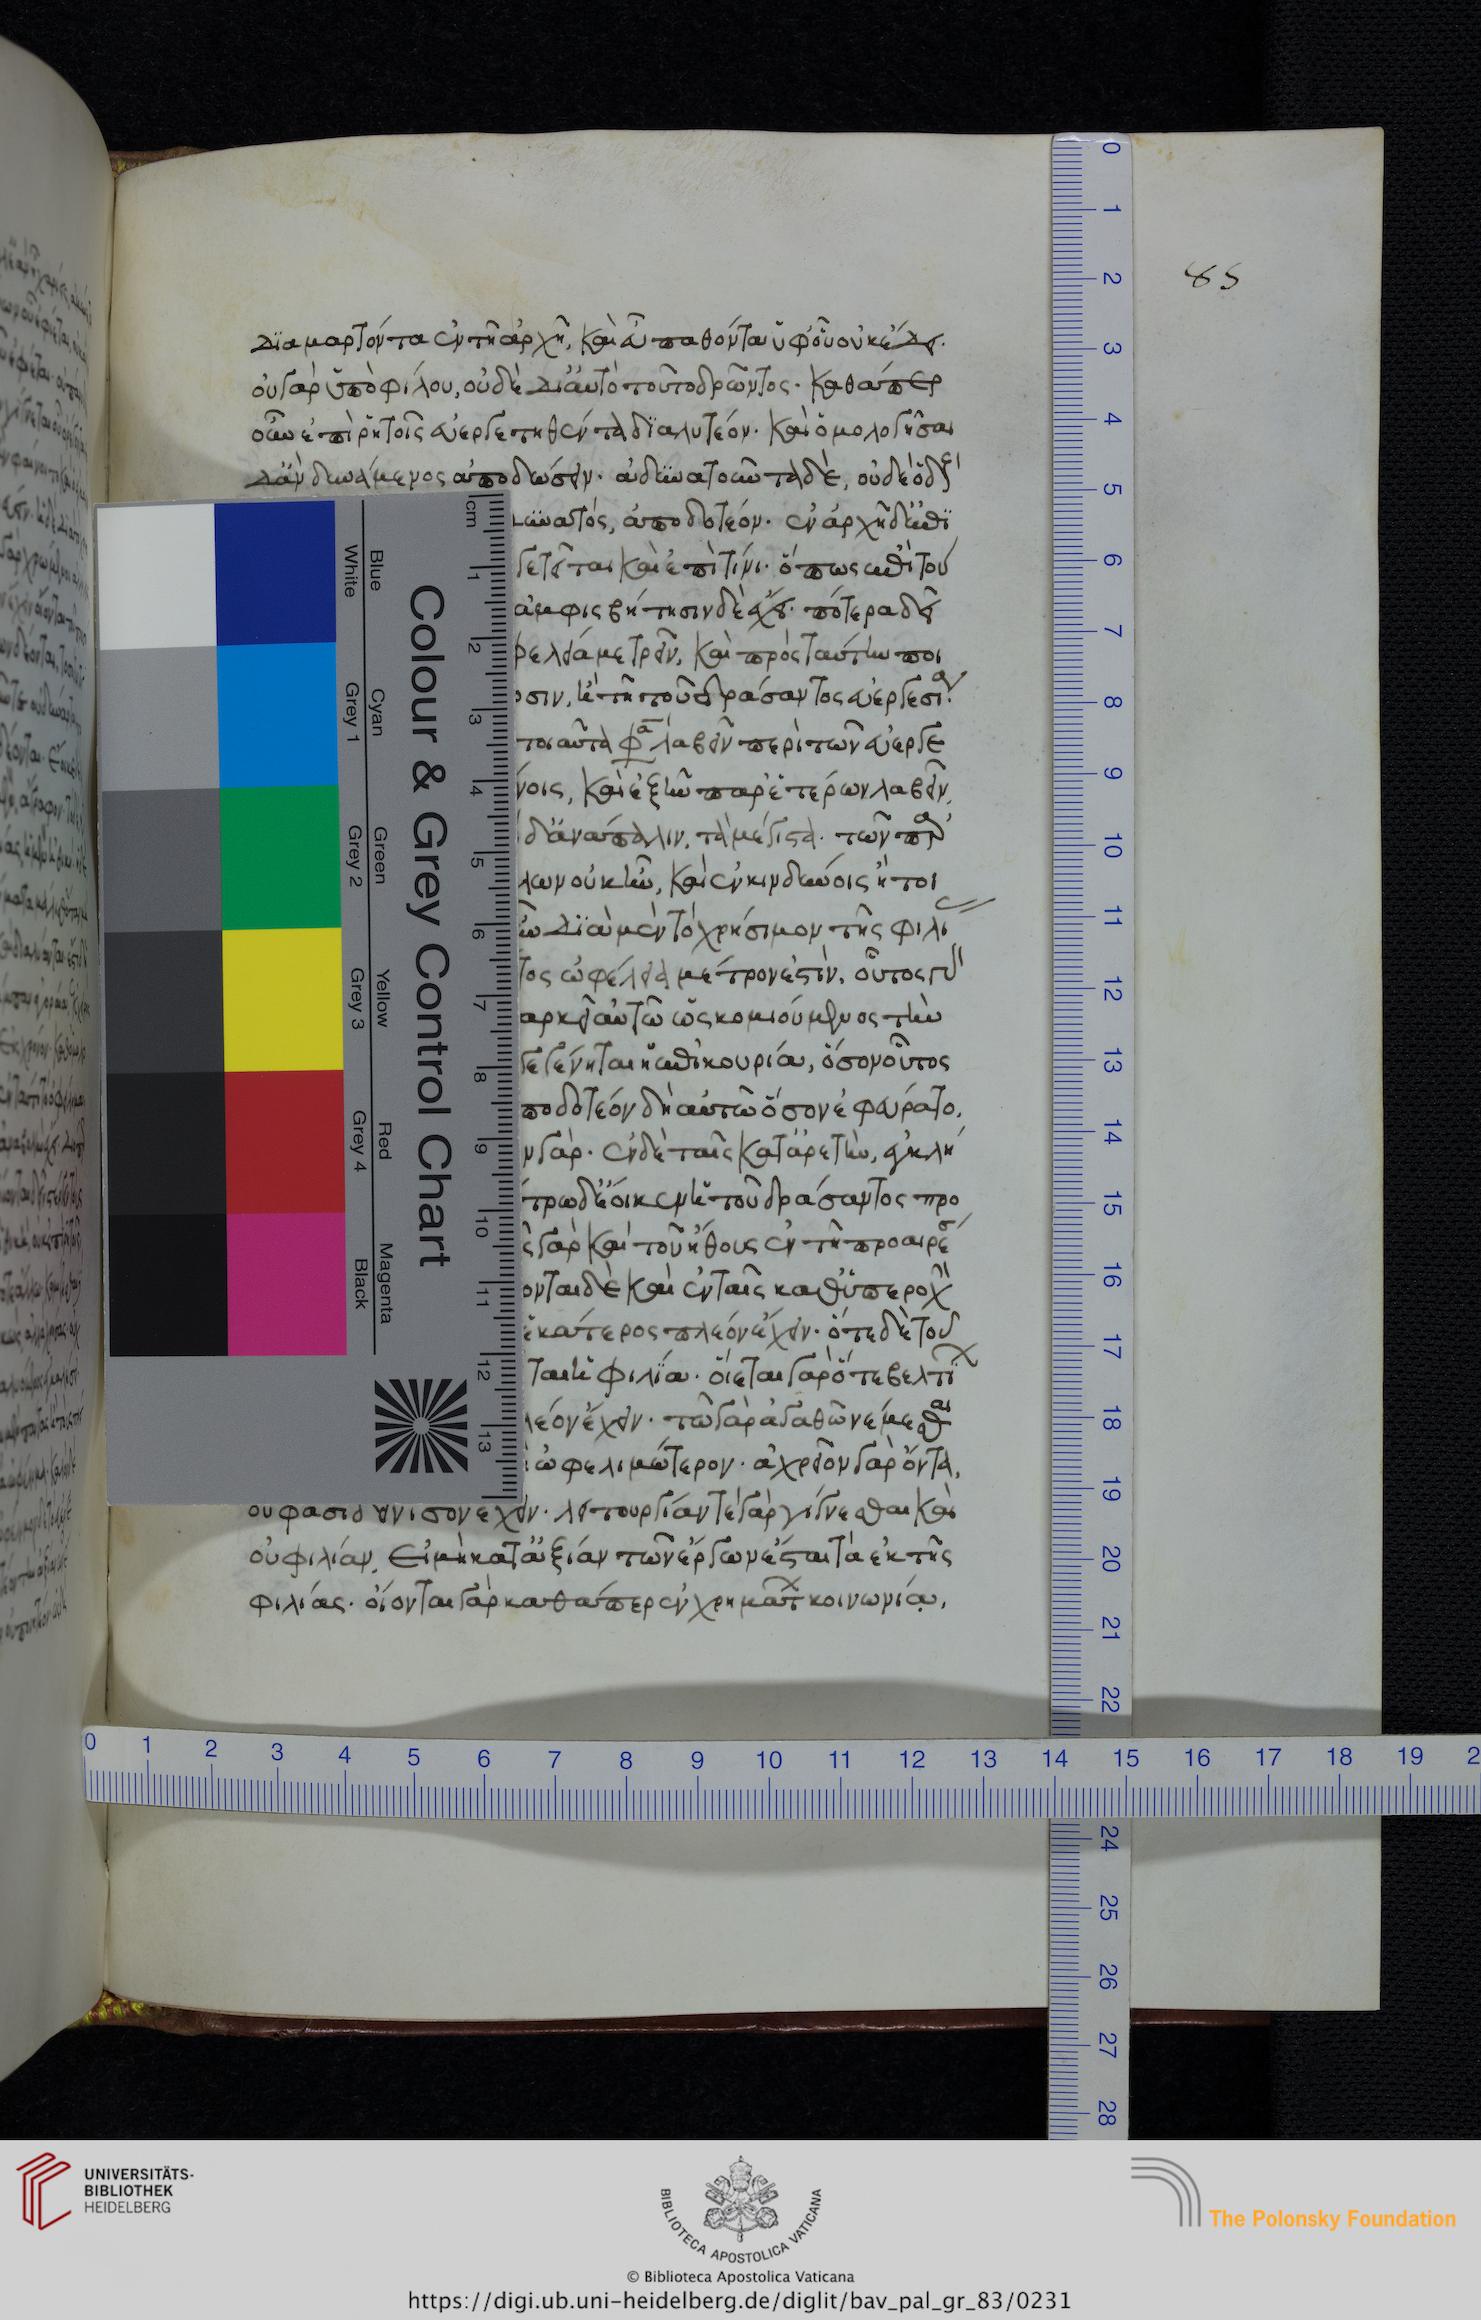 διαμαρτόντα ἐν τῆ ἀρχῆ, καὶ εὖ παθόντα ὑφ' οὗ οὐκ ἔδει.
οὐ γὰρ ὑπὸ φίλου, οὐδὲ δι' αὐτὸ τοῦτο δρῶντος· καθάπερ
οὖν ἐπὶ ῥητοῖς εὐεργετηθέντα διαλυτέον. καὶ ὁμολογῆσαι
δ' ἂν δυνάμενος ἀποδώσειν· ἀδυνατοῦντα δὲ, οὐδὲ ὁ δι
δυνατός, ἀποδοτέον. ἐν ἀρχῆ δ' ἐπι
γετεῖται καὶ ἐπὶ τίνι. ὅπως ἐπὶ του
ἀμφισβήτησιν δὲ ἔχει. πότερα δεῖ
φελεία μετρεῖν, καὶ πρὸς ταύτην ποι
οσιν, ἢ τῆ τοῦ δράσαντος εὐεργεσία.
τοιαῦτα φα λαβεῖν περὶ τῶν εὐεργε
νοις, καὶ ἐξῆν παρ' ἑτέρων λαβεῖν,
δ' ἀνάπαλιν, τὰ μέγιστα. τῶν παρ'
λων οὐκ ἦν, καὶ ἐν κινδύνοις ἢ τοι
ὖν διὰ μὲν τὸ χρήσιμον τῆς φιλι
τος ὠφέλεια μέτρον ἐστὶν. οὗτος γὰρ
αρκεῖ αὐτῶ ὡς κομιούμενος τὴν
γεγένηται ἡ ἐπικουρία, ὅσον οὗτος
ποδοτέον δὴ αὐτῶ ὅσον ἐφαύρατο.
ν γάρ. ἐν δὲ ταῖς κατ' ἀρετὴν, ἐγκλή
τρω δὲ ἔοικεν ἡ τοῦ δράσαντος προ
ς γὰρ καὶ τοῦ ἤθους ἐν τῆ προαιρέσ
ονται δὲ καὶ ἐν ταῖς καθ' ὑπεροχὴ
ἑκάτερος πλέον ἔχειν. ὅτε δὲ τοῦ
ται ἡ φιλία. οἴεται γὰρ ὅ τε βελτί
λέον ἔχειν. τῶ γὰρ ἀγαθῶ νέμεσθαι
ὠφελιμώτερον. ἀχρεῖον γὰρ ὄντα,
οὐ φασὶ δεῖν ἴσον ἔχειν. λειτουργίαν τὲ γὰρ γίγνεσθαι καὶ
οὐ φιλίαν, εἰ μὴ κατ' ἀξίαν τῶν ἔργων ἔσται τὰ ἐκ τῆς
φιλίας. οἴονται γὰρ καθάπερ ἐν χρημάτων κοινωνία,
85
Colour & Grey Control Chart
Blue Cyan Green Yellow Red Magenta
White Grey 1 Grey 2 Grey 3 Grey 4 Black
cm 1 2 3 4 5 6 7 8 9 10 11 12 13
0 1 2 3 4 5 6 7 8 9 10 11 12 13 14 15 16 17 18 19 20 21 22 24 25 26 27 28
0 1 2 3 4 5 6 7 8 9 10 11 12 13 14 15 16 17 18 19 2
UNIVERSITÄTS-
BIBLIOTHEK
HEIDELBERG
BIBLIOTECA APOSTOLICA VATICANA
© Biblioteca Apostolica Vaticana
The Polonsky Foundation
https://digi.ub.uni-heidelberg.de/diglit/bav_pal_gr_83/0231